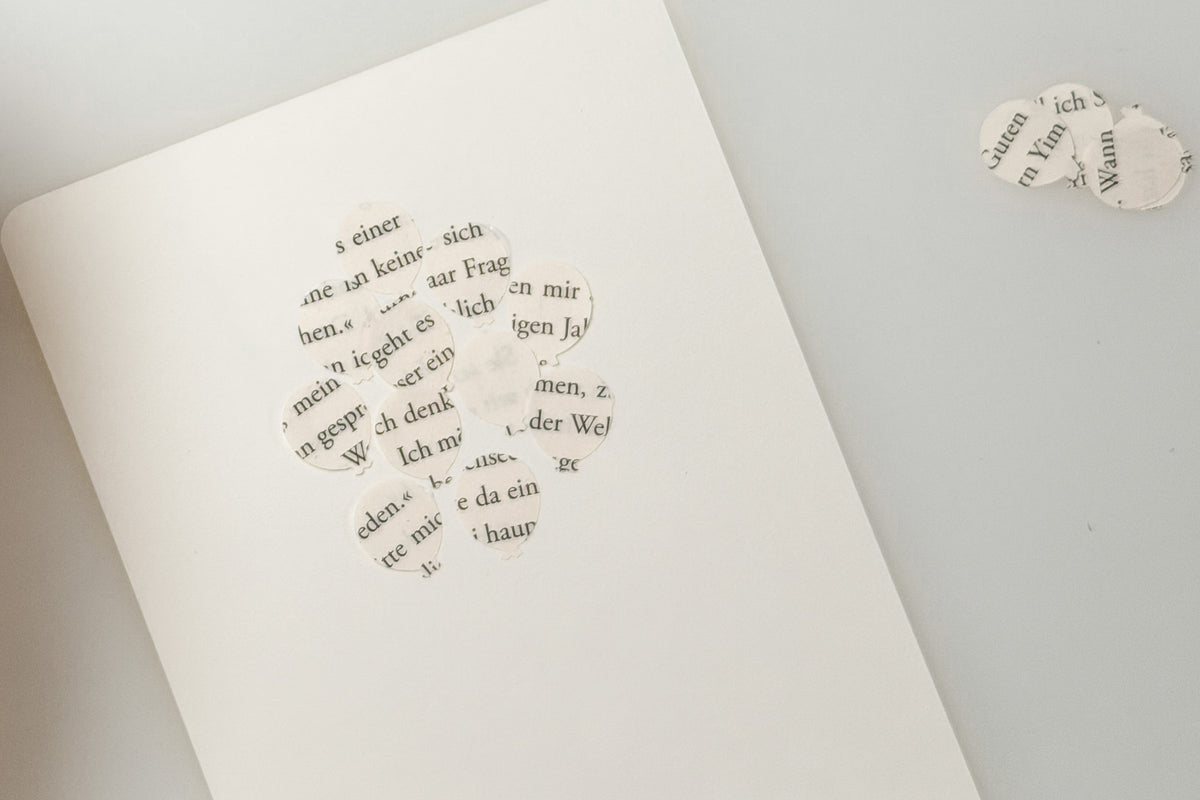 s einer
n keine
sich
aar Frag
lich
ne
hen.«
n ic
geht es
ser ein
en mir
igen Ja
mein
n gespr
W
ch denk
Ich mi
men, z
der Wel
ge
eden.«
tte mic
e da ein
i haup
Guten
rn Yim
ich S
Wann